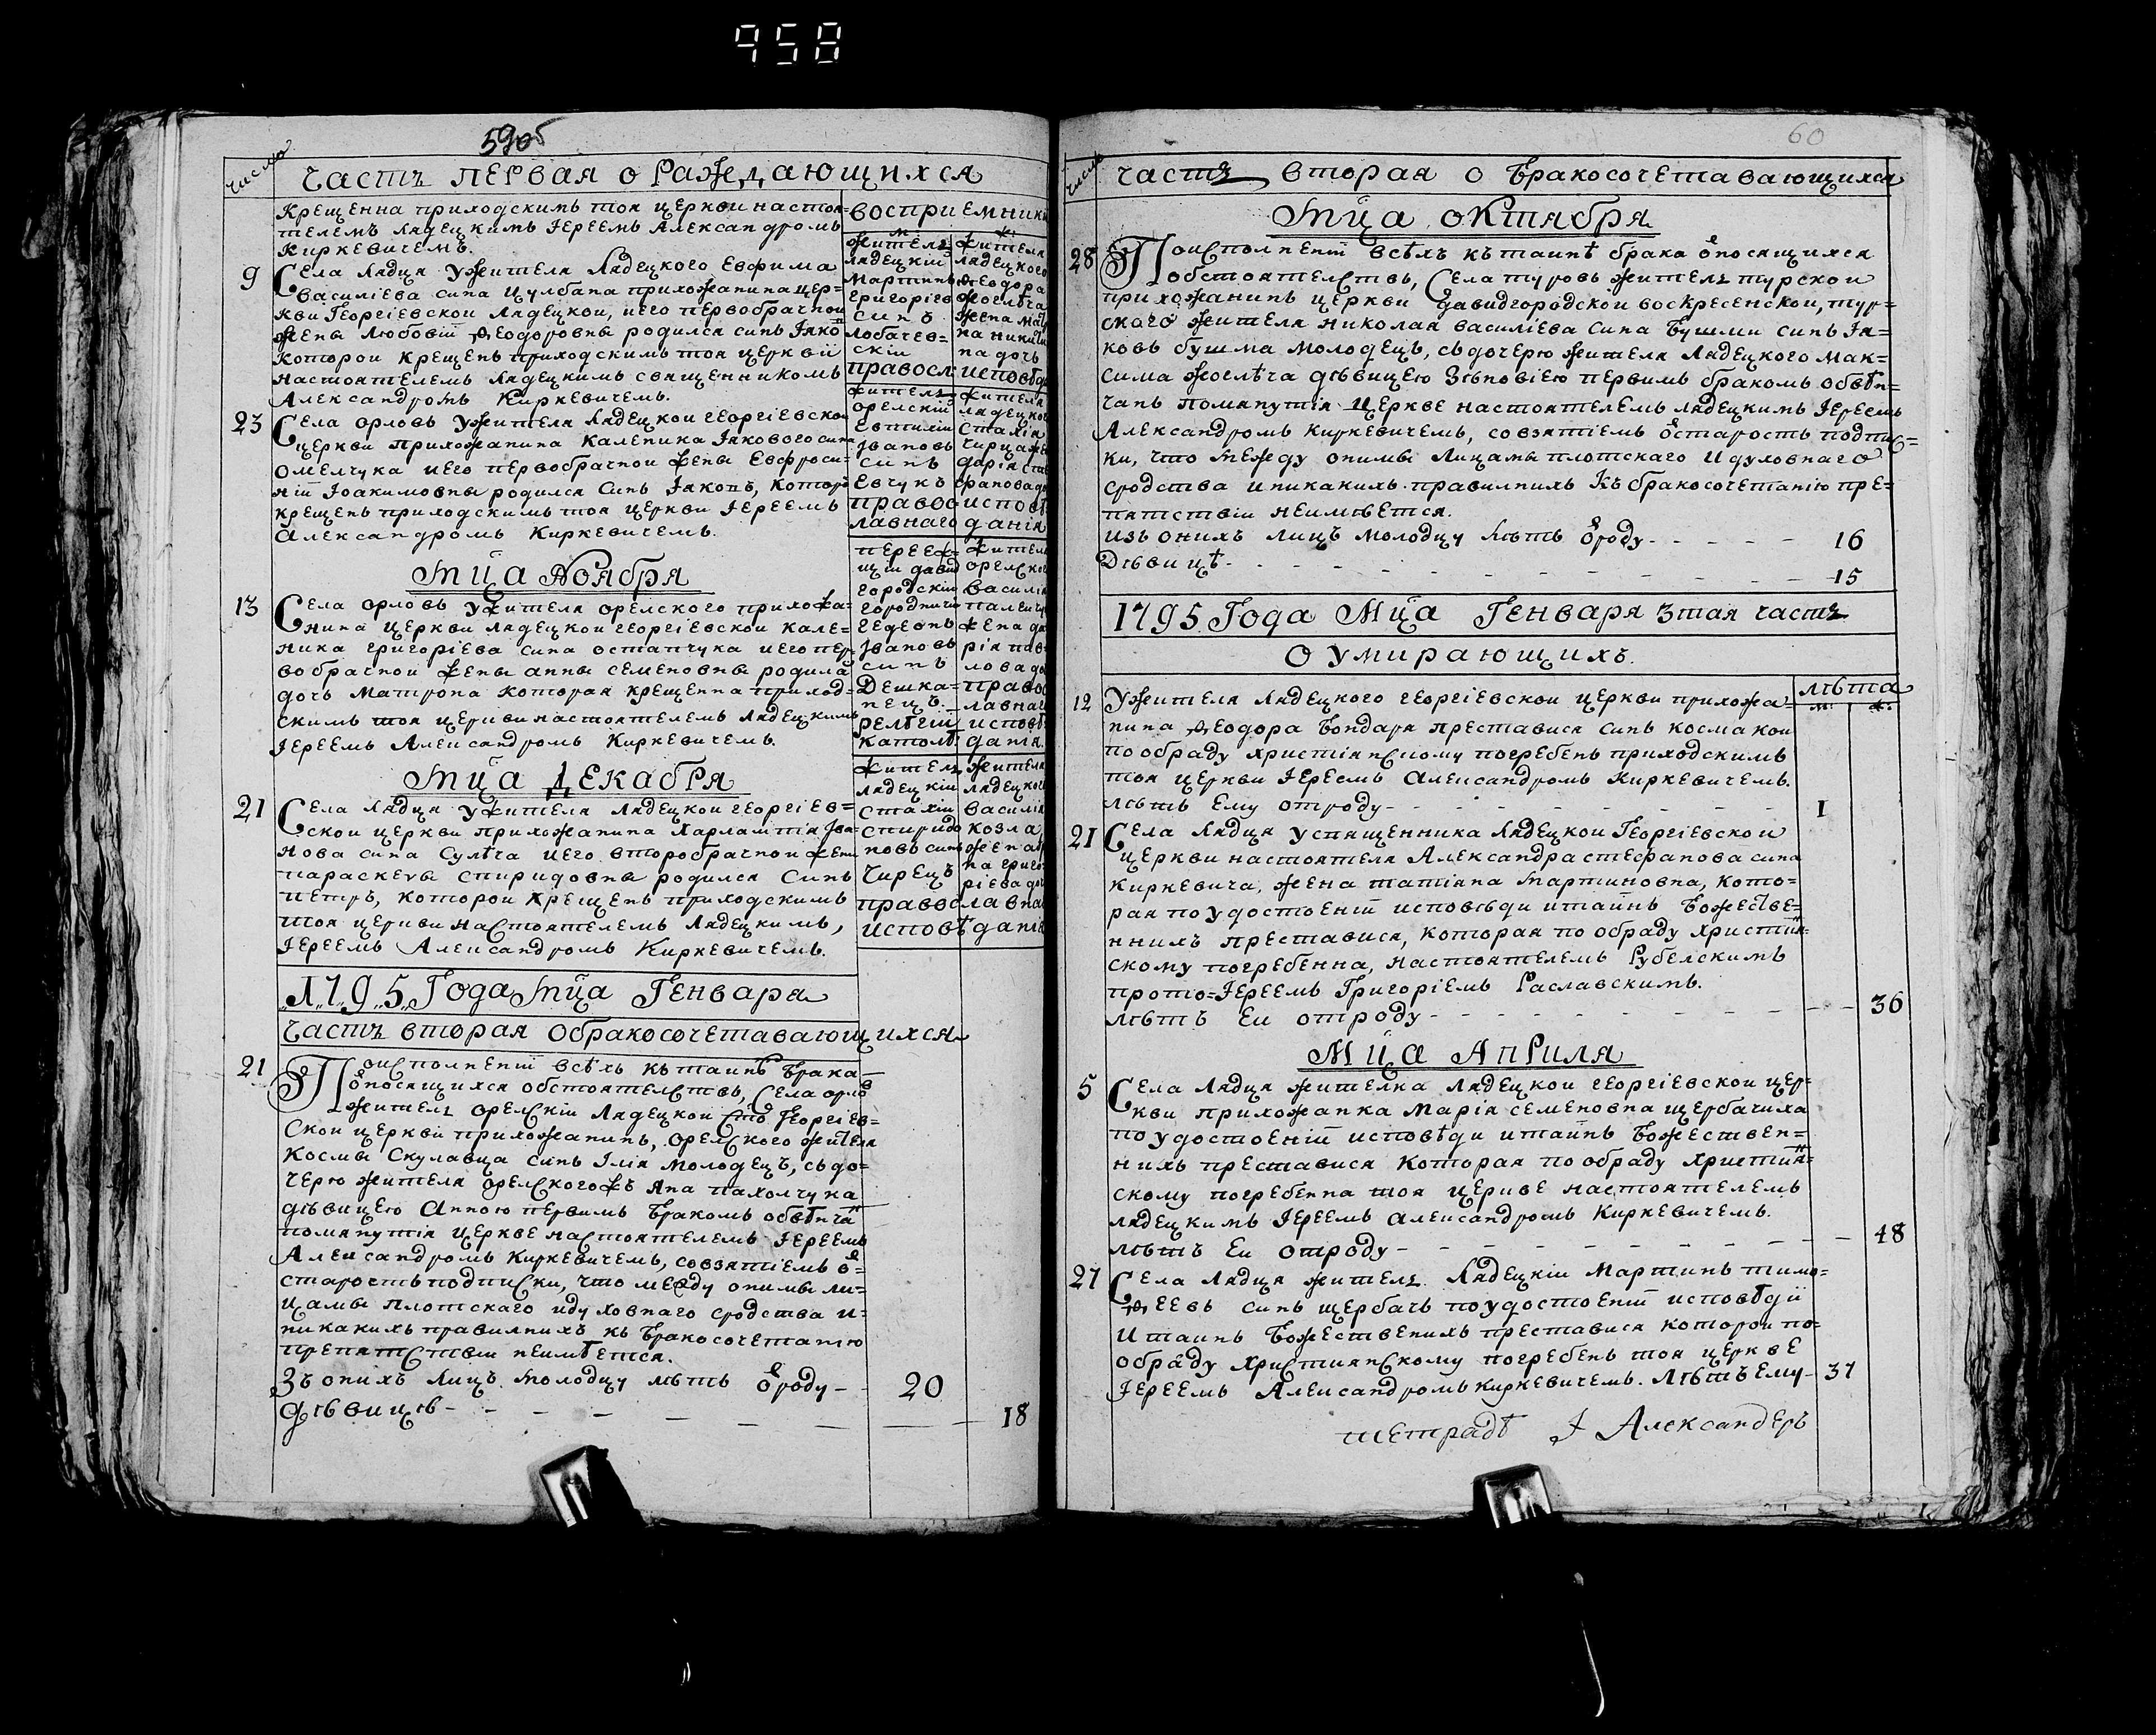 958
59об
числа
Часть первая о Раждающихся
Крещенна приходскимъ тоя церкви настоя=
телемъ Лядецкимъ Іереемъ Александромъ
Киркевичемъ.
9
Села Лядця Ужителя Лядецкого Евфима
Василіева сина Цулбана прихожанина цер=
кви Георгіевской Лядецкой, иего первобрачной
жены Любовіи Ѳеодоровны родился синъ Іако
Которой Крещенъ приходскимъ тоя церквіи
настоятелемъ Лядецкимъ священникомъ
Александромъ Киркевичемъ.
23
Села Орловъ Ужителя Лядецкой георгіевской
церкви прихожанина Каленика Іакового сина
Омелчука иего первобрачной жены Евфроси=
ніи Іоакимовны родился Синъ Іаковъ, Которой
крещенъ приходскимъ тоя церкви Іереемъ
Александромъ Киркевичемъ.
Мца Ноября
13
Села орловъ ужителя орелского прихожа=
нина церкви лядецкой георгіевской кале=
ника григоріева сина остапчука иего пер
вобрачной жены анны семеновны родила
дочъ Матрона которая крещенна приход=
скимъ тоя церкви настоятелемъ Лядецкимъ
Іереемъ Александромъ Киркевичемъ.
Мца Декабря
21
Села Лядця ужителя Лядецкой георгіев=
ской церкви прихожанина Харлампія Іва=
нова сина Сулѣча иего второбрачной жени
параскевы спиридовны родился Синъ
петръ, которой крещенъ приходскимъ
тоя церкви настоятелемъ Лядецкимъ,
Іереемъ Александромъ Киркевичемъ.
воспріемники
м: ж:
жителъ
лядецкій
Мартинъ
григоріев
синъ
лобачев=
скій
правосл:
жителя
лядецкого
Ѳеодора
жоглѣча
жена мат
на никити
на дочъ
исповѣд
жителъ
орелскій
Івановъ
синъ
Евчукъ
правос
лавного
жителя
лядецког
стахія
чирца же
дарія сте
фанова до
исповѣ
данія
перее
щій давид
городскій
городничи
гедеонъ
Івановъ
синъ
Дешка=
нецъ.
релѣгіи
католѣ:
жителя
орелско
василія
жена да
рія пав=
лова до
право
лавнаг
исповѣ
данія.
жителъ
лядецкій
стахій
спиридо
новъ синъ
Чирецъ
правос
исповѣ
жителя
лядецкого
василія
козла
на григо
ріева доч
лавна
данія
1795 Года Мца Генваря
Часть вторая обракосочетавающихся
21
Поисполненіи всѣхъ къ таинѣ Брака
оносящихся обстоятелствъ, Села орло
жителъ орелскій Лядецкой Георгіев=
ской церкви прихожанинъ, орелского жителя
Космы Скулавца синъ Ілія молодецъ, съдо=
черю жителя орелского Яна пахолчука
дѣвицею Анною первимъ Бракомъ обвѣнча
помянутія церкве настоятелемъ Іереемъ
Александромъ Киркевичемъ, совзятіемъ о=
старость подписки, что между онимы ли=
цамы плотскаго идуховнаго сродства и=
никакихъ правилнихъ къ Бракосочетанію
препятствіи неимѣется.
Зъ онихъ лицъ молодцу лѣтъ ороду - 20
дѣвицѣ - - - - 18
60
числа
Часть вторая о Бракосочетавающихся
Мца октября
28
Поисполненіи всѣхъ къ таинѣ брака оносящихся
обстоятелствъ, Села туровъ жителъ турской
прихожанинъ церкви давидгородской воскресенской, тур=
ского жителя николая василіева сина Бушми синъ Іа=
ковъ бушма молодецъ, съдочерю жителя лядецкого Мак=
сима жоглѣча дѣвицею Зѣновіею первимъ бракомъ обвѣн=
чанъ помянутія церкве настоятелемъ лядецкимъ Іереемъ
Александромъ Киркевичемъ, совзятіемъ остарость подпис=
ки, что между онимы лицамы плотскаго идуховнаго
сродства иникакихъ правилнихъ къ бракосочетанію пре=
пятствіи неимѣется.
изъ онихъ лицъ молодцу лѣтъ ороду - - - - 16
Дѣвицѣ - - - - 15
1795 Года Мца Генваря 3тая часть
О умирающихъ.
лѣта
м: ж:
12
Ужителя лядецкого георгіевской церкви прихожа=
нина Ѳеодора Бондаря преставися синъ косма кои
по обряду христіянскому погребенъ приходскимъ
тоя церкви Іереемъ Александромъ Киркевичемъ.
лѣтъ ему отроду - - - - 1
21
Села Лядця усвященника Лядецкой Георгіевской
церкви настоятеля Александра стефанова сина
киркевича, жена татіяна мартиновна, кото=
рая по удостоеніи исповѣди итаинъ Божестве=
ннихъ преставися, которая по обряду христия=
скому погребенна, настоятелемъ Рубелскимъ
прото=Іереемъ Григоріемъ Раславскимъ.
лѣтъ еи отроду - - - - 36
Мца Априля
5
Села Лядця жителка Лядецкой георгіевской цер=
кви прихожанка Марія семеновна щербачиха
поудостоеніи исповѣди итаинъ Божествен=
нихъ преставися которая по обряду христия=
скому погребенна тоя церкве настоятелемъ
лядецкимъ Іереемъ александромъ Киркевичемъ.
лѣтъ еи отроду - - - - 48
27
Села Лядця жителъ Лядецкій Мартинъ тимо=
Ѳеевъ синъ щербачъ поудостоеніи исповѣдіи
Итаинъ Божественихъ преставися которой по=
обряду христіянскому погребенъ тоя церкве
Іереемъ Александромъ киркевичемъ. Лѣтъ ему - 37
тетрадѣ Александеръ